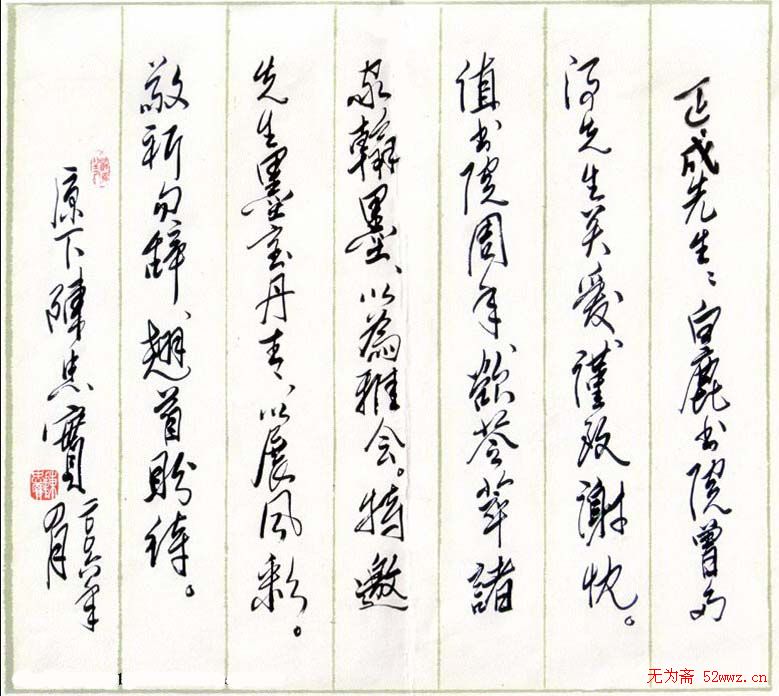 正成先生：白鹿书院曾为
得先生关爱，谨致谢忱。
值书院周年，欲荟萃諸
家翰墨，以為雅会。特邀
先生墨宝丹青，以展风彩。
敬祈勿辞，翘首盼待。
原下陳忠實
二〇〇六年
四月
无为斋 52wwz.cn